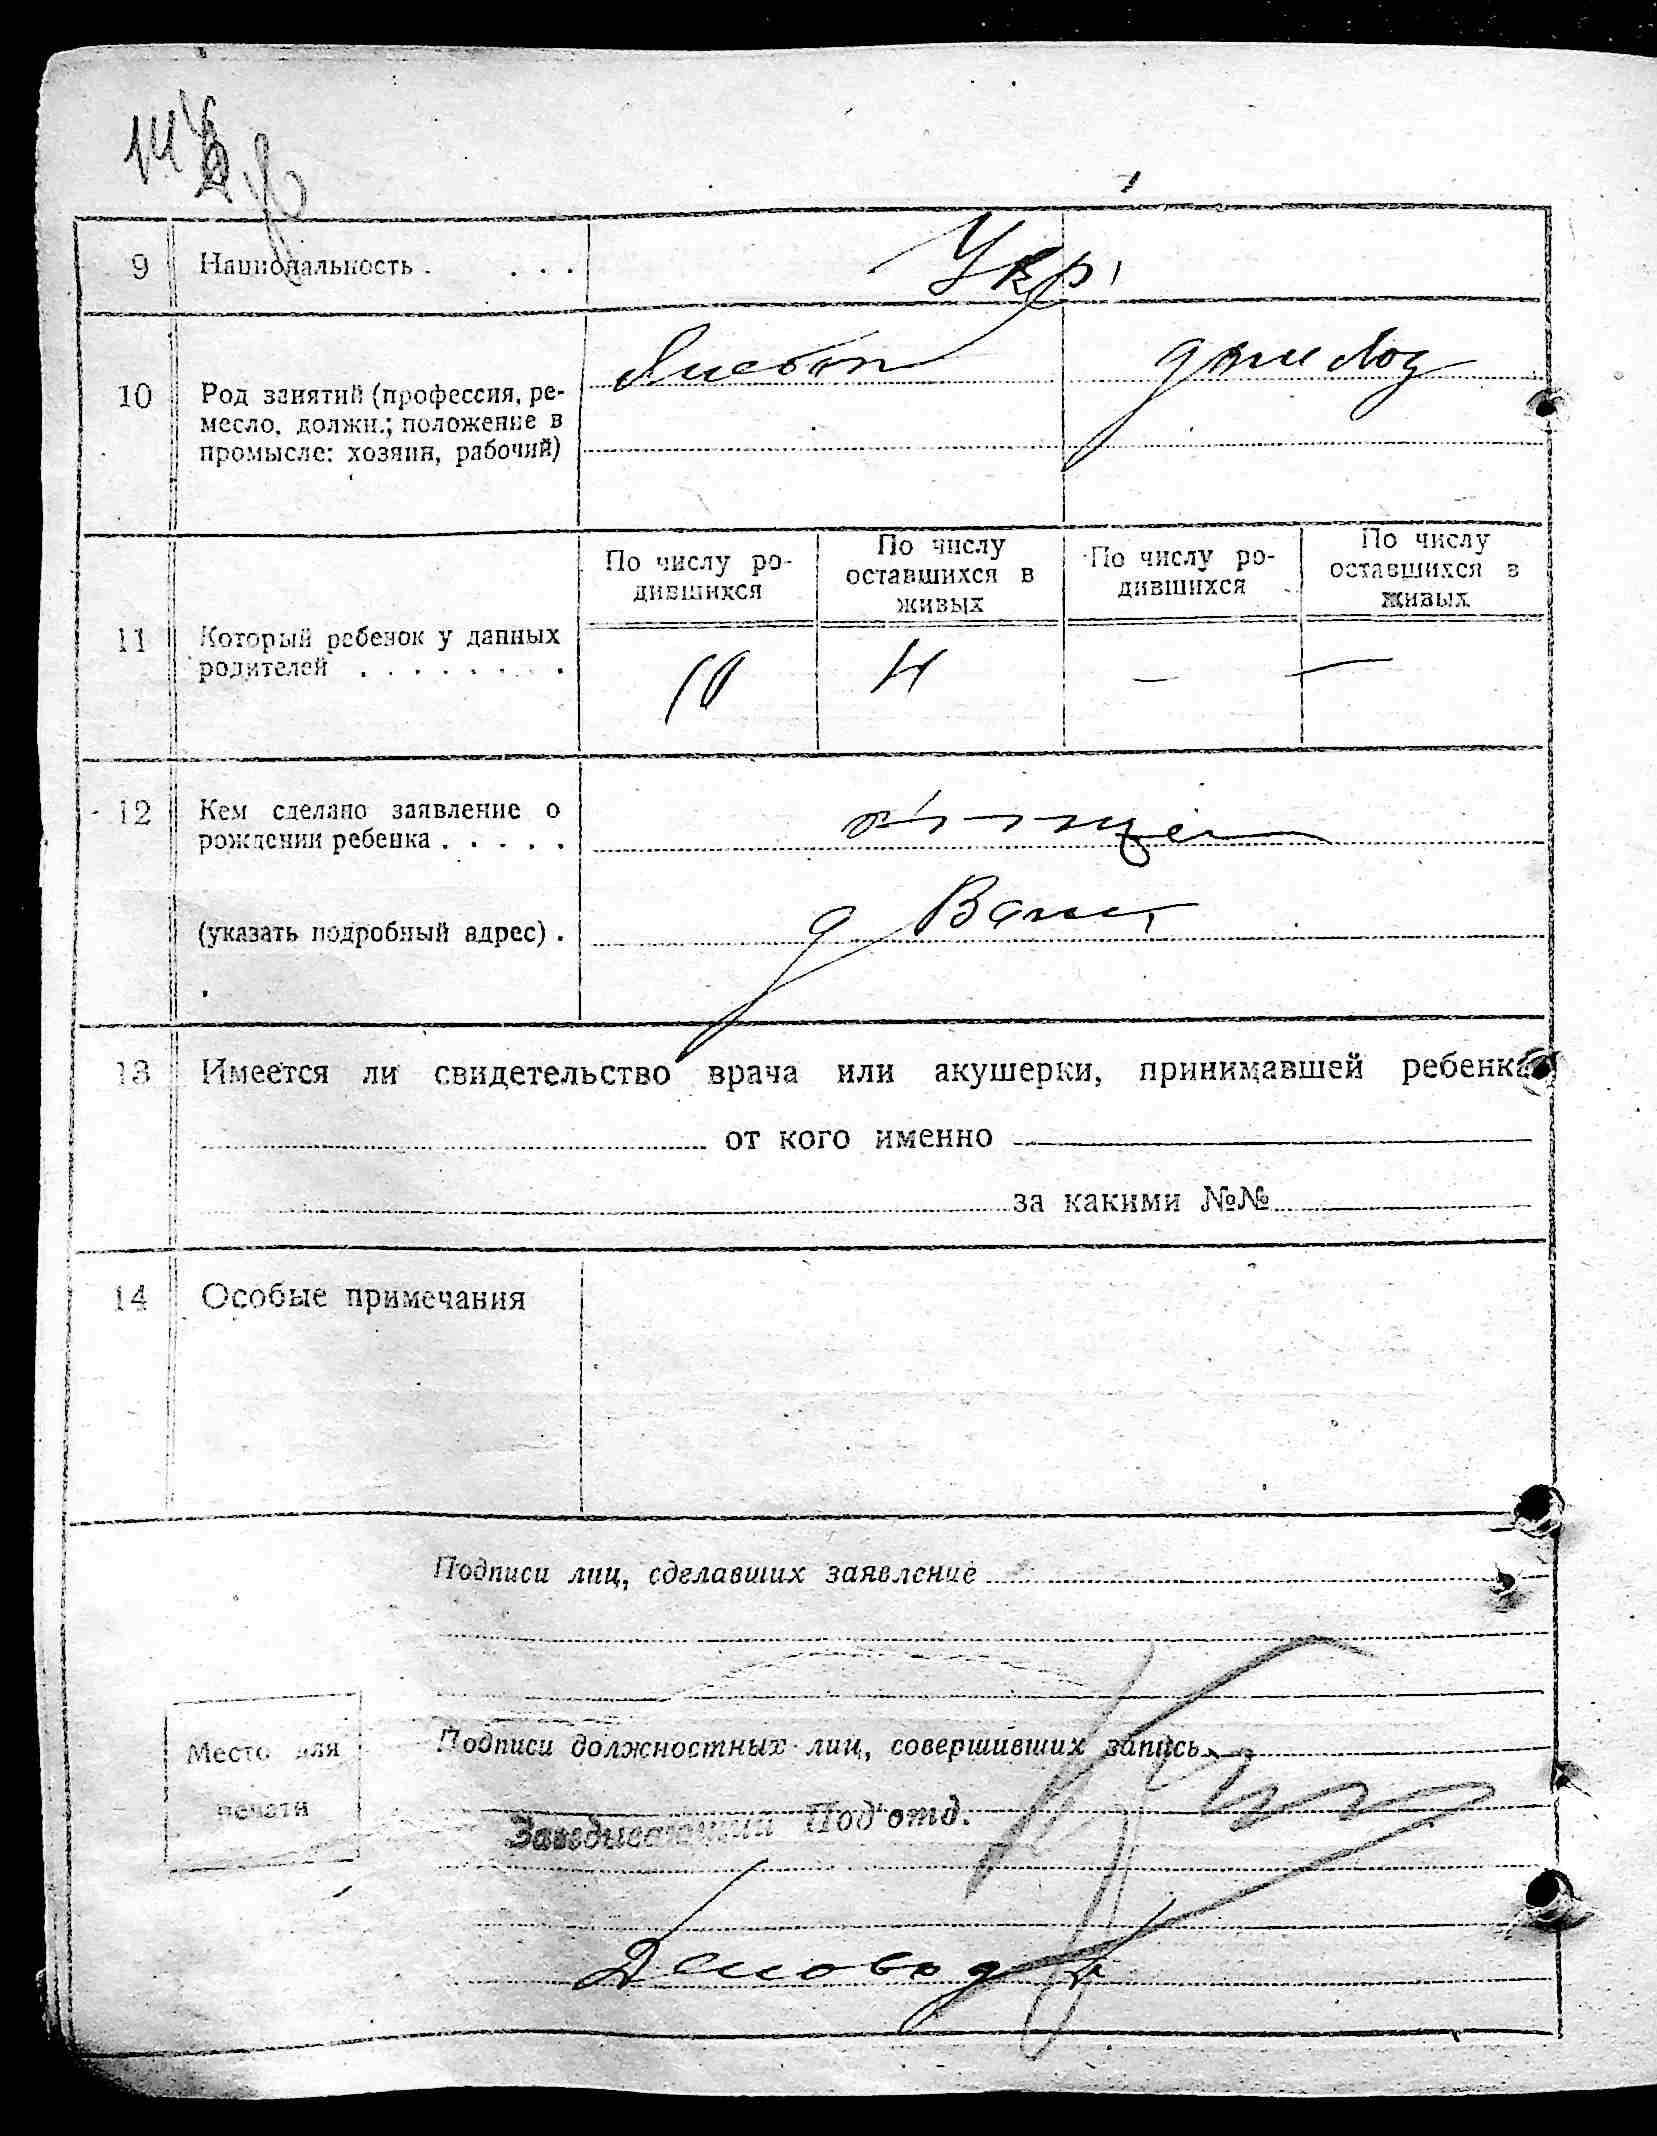 9 Национальность . . . . Укр.
10 Род занятий (профессия, ре-
месло, должн.; положение в
промысле: хозяин, рабочий)
По числу ро-
дившихся
По числу
оставшихся в
живых
По числу ро-
дившихся
По числу
оставшихся в
живых
11 Который ребенок у данных
родителей . . . . . . . . 10 4 — —
12 Кем сделано заявление о
рождении ребенка . . . . .
(указать подробный адрес) .
13 Имеется ли свидетельство врача или акушерки, принимавшей ребенка
от кого именно
за какими №№
14 Особые примечания
Подписи лиц, сделавших заявление
Подписи должностных лиц, совершивших запись
Место для
печати
Заведывающий Под'отд.
Деловод